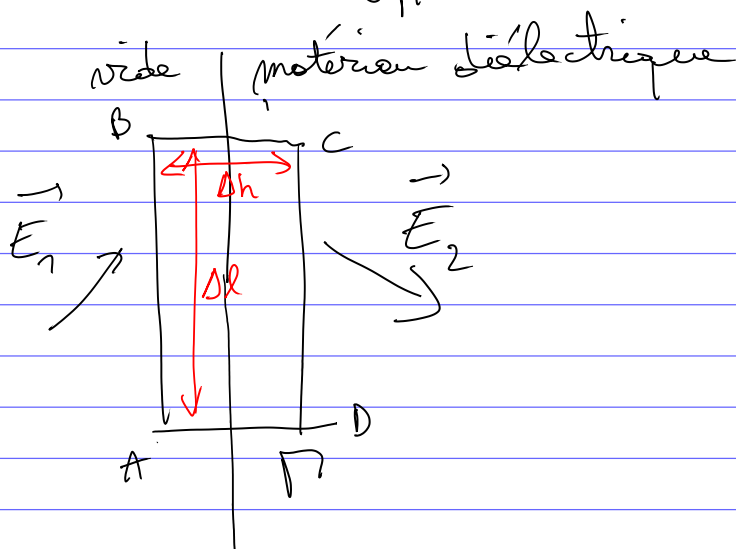 vide matériau diélectrique
B
C
Δh
E₁
E₂
Δl
D
A
Γ